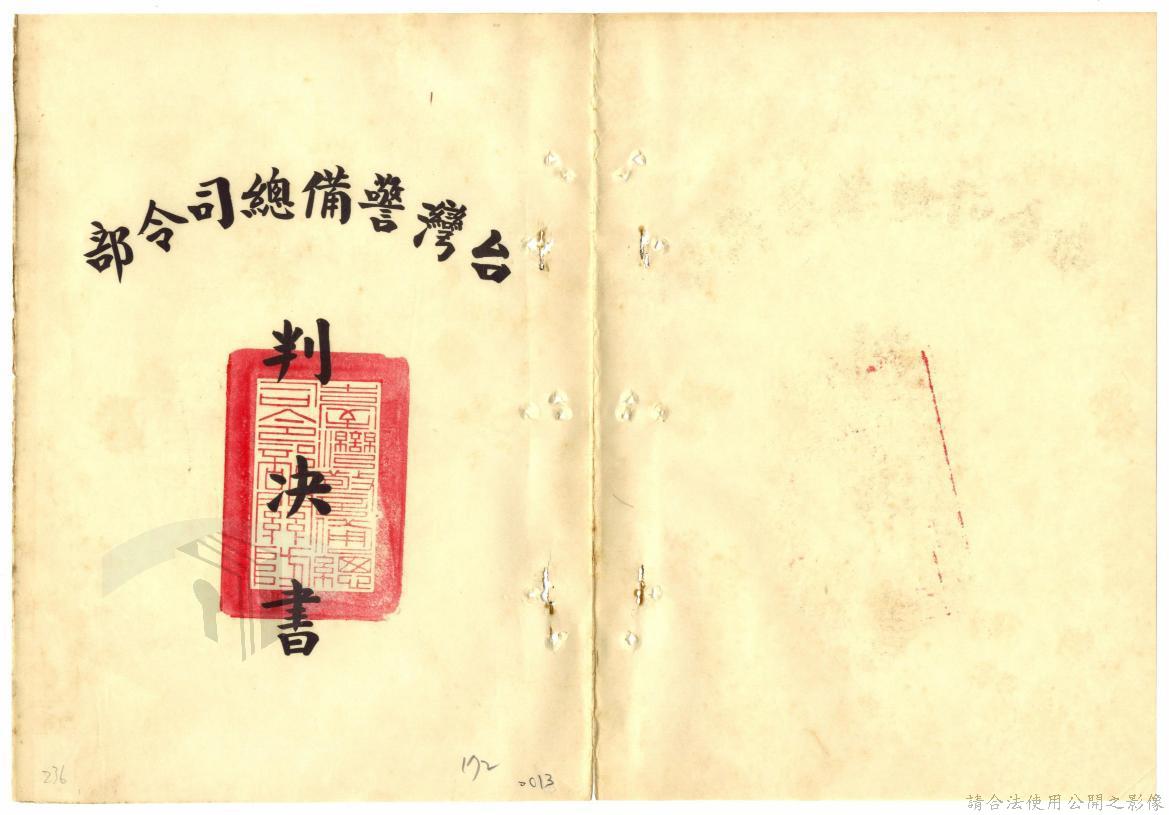 台灣警備總司令部
判決書
臺灣警備總
司令部關防
236
172
0013
請合法使用公開之影像